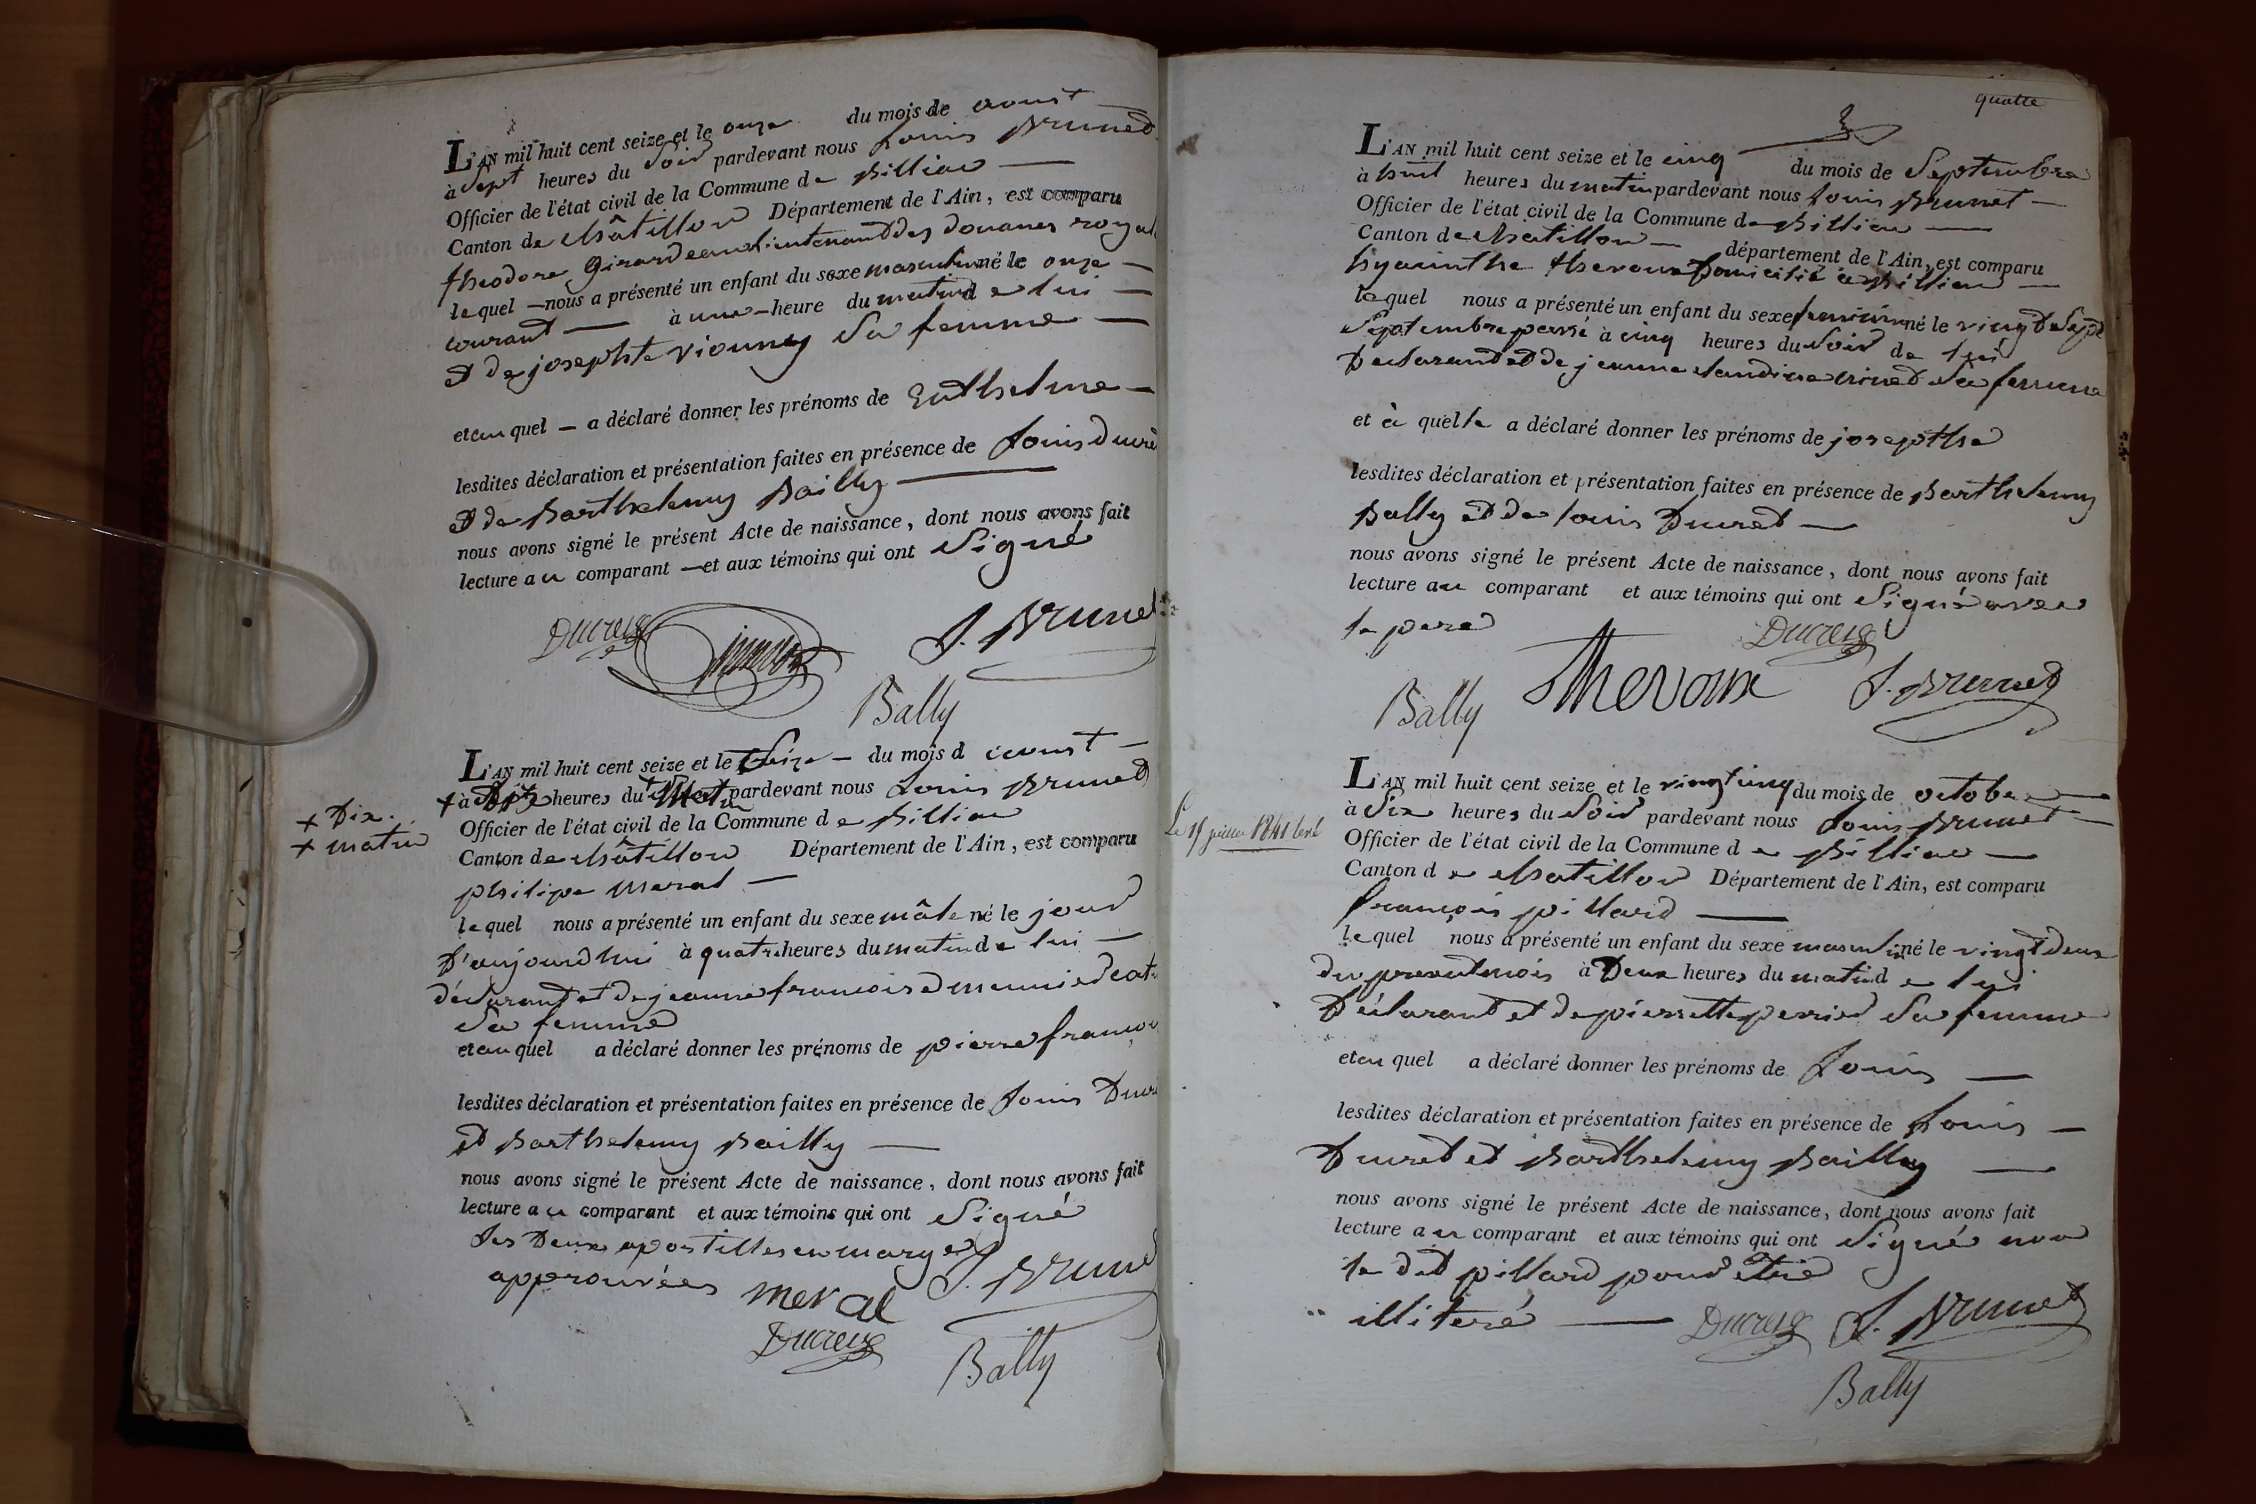 L'AN mil huit cent seize et le onze du mois de aoust
à Sept heures du Soir pardevant nous Louis Brunet
Officier de l'état civil de la Commune de Billiac
Canton de châtillon Département de l'Ain, est comparu
theodore Girardeau lieutenant des douanes royal
lequel nous a présenté un enfant du sexe masculin né le onze
courant à une heure du matin de lui
et de josephte viouny Sa femme
et au quel a déclaré donner les prénoms de Enthelme
lesdites déclaration et présentation faites en présence de Louis Ducret
et de Barthelemy Bailly
nous avons signé le présent Acte de naissance, dont nous avons fait
lecture au comparant et aux témoins qui ont Signé
Ducret J. Brunet
Bally
L'AN mil huit cent seize et le Seize du mois d aoust
+ à heures du + pardevant nous Louis Brunet
+ Dix.
+ matin
Officier de l'état civil de la Commune de Billiac
Canton de châtillon Département de l'Ain, est comparu
philipe Meral
lequel nous a présenté un enfant du sexe mâle né le jour
D'aujourd'hui à quatre heures du matin de lui
déclarant et de jeanne françoise
Sa femme
et au quel a déclaré donner les prénoms de pierre françoi
lesdites déclaration et présentation faites en présence de Louis Ducre
et Barthelemy Bailly
nous avons signé le présent Acte de naissance, dont nous avons fait
lecture au comparant et aux témoins qui ont Signé
Les Deux apostilles en marge
approuvées meral J. Brunet
Ducret
Bally
quatre
L'AN mil huit cent seize et le cinq du mois de Septembre
à huit heures du matin pardevant nous Louis Brunet
Officier de l'état civil de la Commune de Billiac
Canton de chatillon département de l'Ain, est comparu
hyacinthe thevoux Domicilié à Billiac
lequel nous a présenté un enfant du sexe feminin né le vingt Sept
Septembre passé à cinq heures du Soir de lui
Déclarant et de jeanne claudine Sa femme
et à quelle a déclaré donner les prénoms de josepthe
lesdites déclaration et présentation faites en présence de Barthelemy
Bally et de louis Ducret
nous avons signé le présent Acte de naissance, dont nous avons fait
lecture au comparant et aux témoins qui ont Signé avec
le pere Ducret
Bally Thevoux J. Brunet
L'AN mil huit cent seize et le vingt cinq du mois de octobre
à Six heures du Soir pardevant nous Louis Brunet
Officier de l'état civil de la Commune de Billiac
Canton de chatillon Département de l'Ain, est comparu
françois pillard
lequel nous a présenté un enfant du sexe masculin né le vingt deux
du present mois à Deux heures du matin de lui
Déclarant et de pierrette perrier Sa femme
et au quel a déclaré donner les prénoms de Louis
lesdites déclaration et présentation faites en présence de Louis
Ducret et Barthelemy Bailly
nous avons signé le présent Acte de naissance, dont nous avons fait
lecture au comparant et aux témoins qui ont Signé non
le dit pillard pour être
illiteré Ducret J. Brunet
Bally